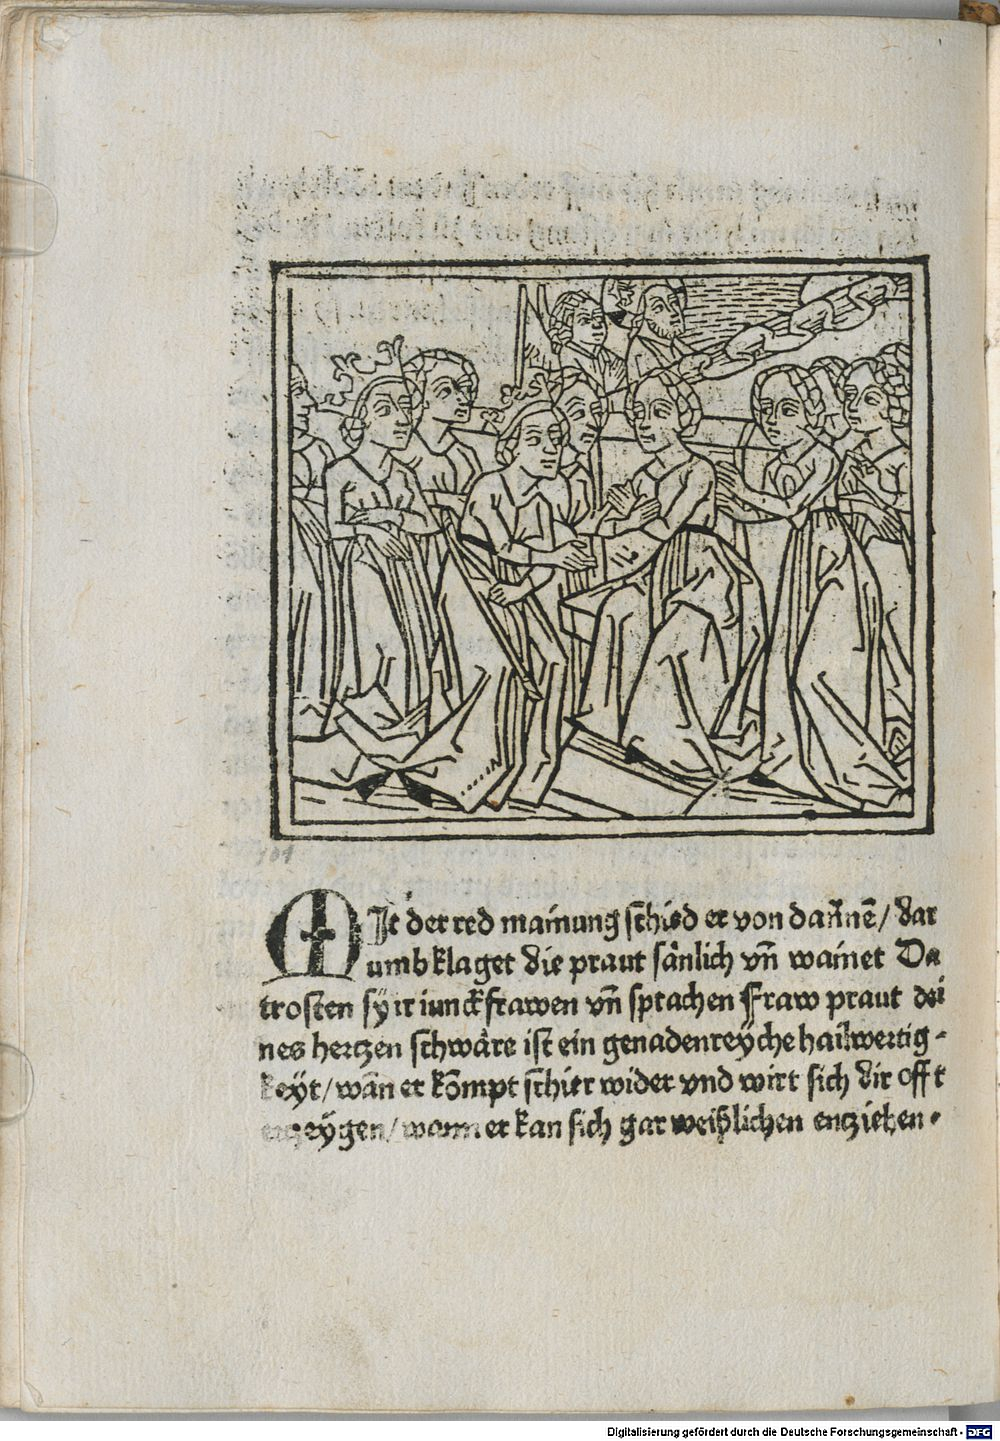 Mit der red mainung schied er von dañne͂/ dar
umb klaget die praut sänlich vn͂ wainet Da
trosten sÿ ir iunckfrawen vn͂ sprachen Fraw praut dei
nes hertzen schwäre ist ein genadenreÿche hailwertig-
keyt/ wan͂ er ko͂mpt schier wider vnd wirt sich dir offt
erzeÿgen/ wann er kan sich gar weißlichen entziehen.
Digitalisierung gefördert durch die Deutsche Forschungsgemeinschaft - DFG